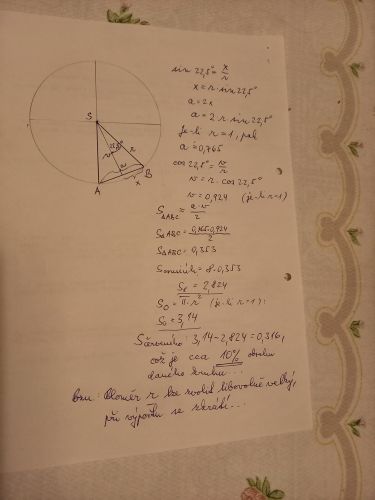 S
22,5°
r
v
A
B
x
sin 22,5° = x/r
x = r · sin 22,5°
a = 2x
a = 2 · r · sin 22,5°
je-li r = 1, pak
a ≐ 0,765
cos 22,5° = v/r
v = r · cos 22,5°
v = 0,924 (je-li r=1)
S△ABC = a·v/2
S△ABC = 0,765·0,924/2
S△ABC = 0,353
8 · 0,353
S8 = 2,824
So = π · r² (je-li r=1):
So = 3,14
3,14 - 2,824 = 0,316,
což je cca 10% obsahu
daného kruhu...
Pozn.: Poloměr r lze zvolit libovolně velký,
při výpočtu se zkrátí...